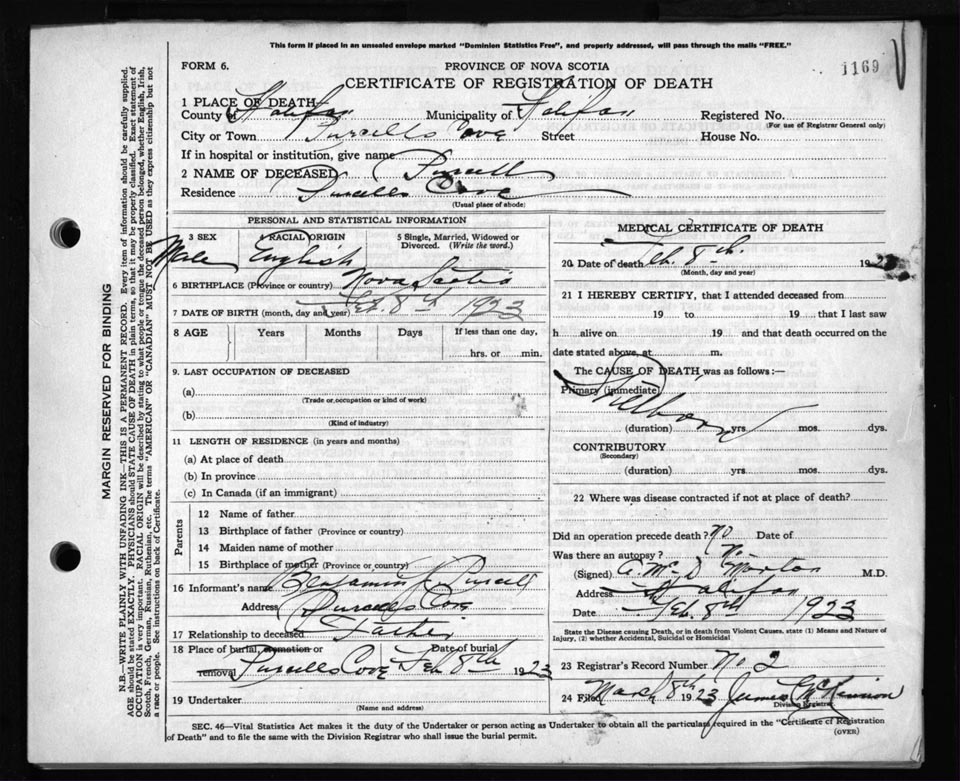 This form if placed in an unsealed envelope marked "Dominion Statistics Free", and properly addressed, will pass through the mails "FREE."
FORM 6.
PROVINCE OF NOVA SCOTIA
1169
CERTIFICATE OF REGISTRATION OF DEATH
1 PLACE OF DEATH
County of Halifax Municipality of Halifax Registered No.
(For use of Registrar General only)
City or Town Purcells Cove Street House No.
If in hospital or institution, give name
2 NAME OF DECEASED Purcell
Residence Purcells Cove
(Usual place of abode)
PERSONAL AND STATISTICAL INFORMATION
3 SEX 4 RACIAL ORIGIN 5 Single, Married, Widowed or Divorced. (Write the word.)
Male English
6 BIRTHPLACE (Province or country) Nova Scotia
7 DATE OF BIRTH (month, day and year) Feb. 8th 1923
8 AGE Years Months Days If less than one day,
hrs. or min.
9. LAST OCCUPATION OF DECEASED
(a)
(Trade or occupation or kind of work)
(b)
(Kind of industry)
11 LENGTH OF RESIDENCE (in years and months)
(a) At place of death
(b) In province
(c) In Canada (if an immigrant)
Parents
12 Name of father
13 Birthplace of father (Province or country)
14 Maiden name of mother
15 Birthplace of mother (Province or country)
16 Informant's name Benjamin Purcell
Address Purcells Cove
17 Relationship to deceased Father
18 Place of burial, cremation or removal Purcells Cove Date of burial Feb 8th 1923
19 Undertaker
(Name and address)
MEDICAL CERTIFICATE OF DEATH
20 Date of death Feb. 8th. 1923
(Month, day and year)
21 I HEREBY CERTIFY, that I attended deceased from
19 to 19 that I last saw
h alive on 19 and that death occurred on the
date stated above, at m.
The CAUSE OF DEATH was as follows :—
Primary (immediate)
Stillborn
(duration) yrs mos. dys.
CONTRIBUTORY
(Secondary)
(duration) yrs mos. dys.
22 Where was disease contracted if not at place of death?
Did an operation precede death? No Date of
Was there an autopsy? No
(Signed) A. McD Morton M.D.
Address Halifax
Date Feb. 8th 1923
State the Disease causing Death, or in death from Violent Causes, state (1) Means and Nature of Injury, (2) whether Accidental, Suicidal or Homicidal
23 Registrar's Record Number No. 2
24 Filed March 8th 1923 James McKinnon
Division Registrar
SEC. 46—Vital Statistics Act makes it the duty of the Undertaker or person acting as Undertaker to obtain all the particulars required in the "Certificate of Registration
of Death" and to file the same with the Division Registrar who shall issue the burial permit.
(OVER)
MARGIN RESERVED FOR BINDING
N.B.—WRITE PLAINLY WITH UNFADING INK—THIS IS A PERMANENT RECORD. Every item of information should be carefully supplied.
AGE should be stated EXACTLY. PHYSICIANS should STATE CAUSE OF DEATH in plain terms, so that it may be properly classified. Exact statement of
OCCUPATION is very important. RACIAL ORIGIN will be described by stating to what people or tongue the deceased person belonged, whether English, Irish,
Scotch, French, German, Russian, Ruthenian, etc. The terms "AMERICAN" OR "CANADIAN" MUST NOT BE USED as they express citizenship but not
a race or people. See instructions on back of Certificate.